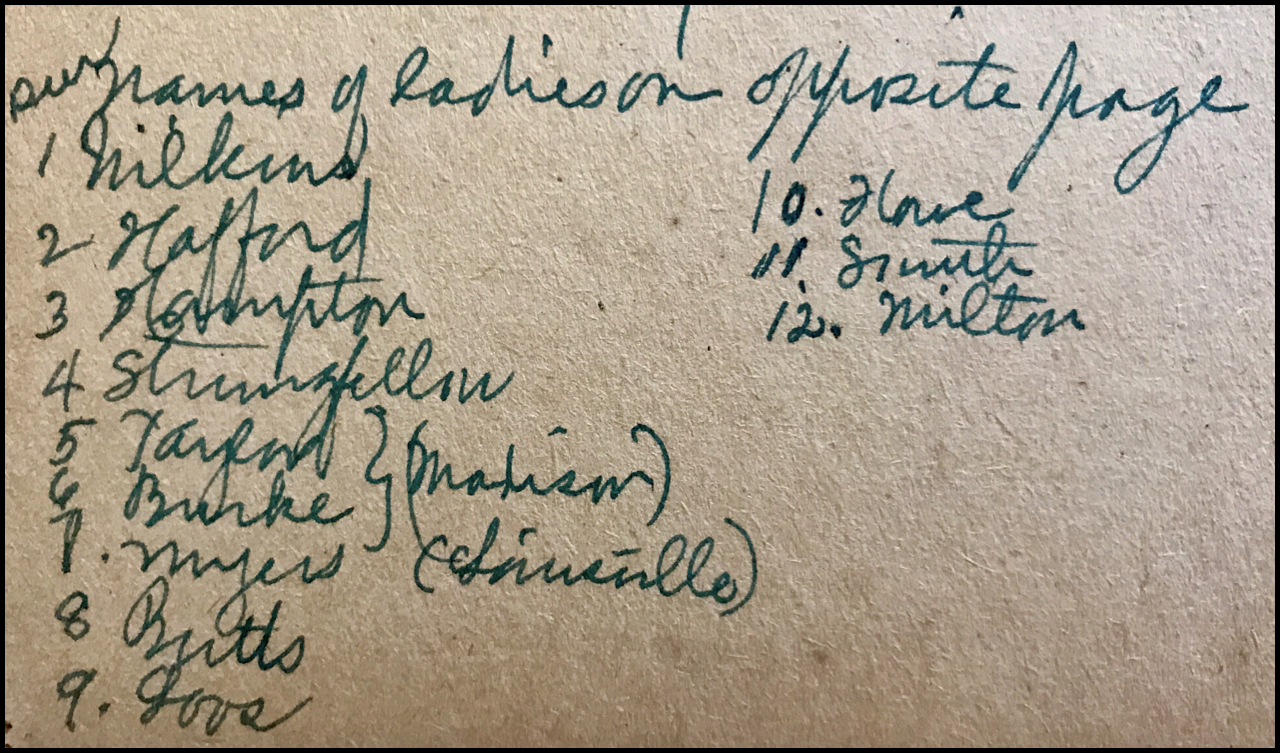 Surnames of ladies on opposite page
1 Wilkins
2 Hafford
3 Hampton
4 Stringfellow
5 Taylor } (Madison)
6 Burke
7. Myers (Louisville)
8 Butts
9. Goos
10. Howe
11. Smith
12. Milton